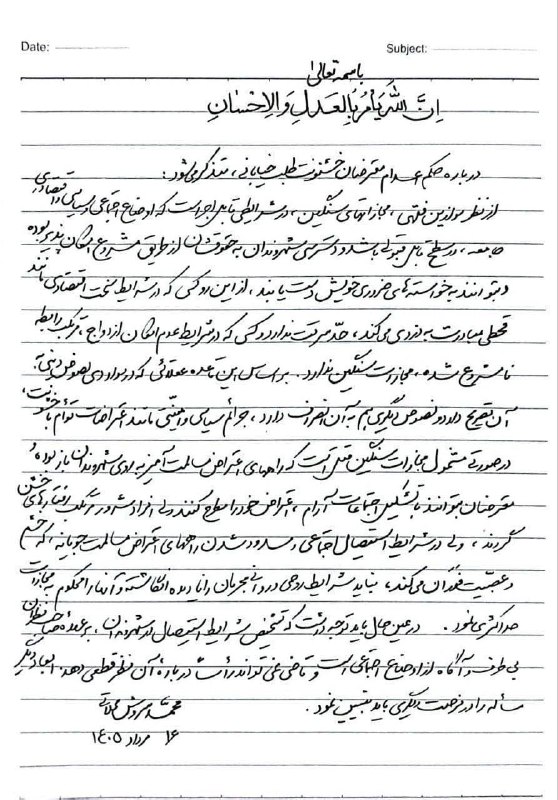 Date:
Subject:
باسمه تعالی
اِنَّ اللّهَ یَأمُرُ بِالعَدلِ وَالاِحسٰانِ
درباره حکم اعدام معترضان خشونت طلب خیابانی، متذکر می‌شود:
از نظر موازین فقهی، مجازاتهای سنگین، در شرایطی قابل اجراست که اوضاع اجتماعی و سیاسی و اقتصادی
جامعه، در سطح قابل قبولی باشد و دسترسی شهروندان به حقوقشان از طریق مشروع امکان پذیر بوده
و بتوانند به خواسته‌های ضروری خویش دست یابند، از این رو کسی که در شرایط سخت اقتصادی مانند
قحطی مبادرت به دزدی می‌کند، حدّ سرقت ندارد و کسی که در شرایط عدم امکان ازدواج، مرتکب رابطه
نامشروع شده، مجازات سنگین ندارد. بر اساس این قاعده عقلائی که در مواردی نصوص دینی به
آن تصریح دارد و نصوص دیگری هم به آن انصراف دارد، جرائم سیاسی و امنیتی مانند اعتراضات توأم با خشونت،
در صورتی مشمول مجازات سنگین قتل است که راههای اعتراض مسالمت آمیز به روی شهروندان باز بوده و
معترضان بتوانند با تشکیل اجتماعات آرام، اعتراض خود را مطرح کنند ولی افراد شرور مرتکب رفتارهای خشن
گردند، ولی در شرایط استیصال اجتماعی و مسدود شدن راههای اعتراض مسالمت جویانه، که خشم
و عصبیت فوران می‌کند، نباید شرایط روحی و روانی مجرمان را نادیده انگاشته و آنها را محکوم به مجازات
حداکثری نمود. در عین حال باید توجه داشت که تشخیص شرایط استیصال در شهروندان، بر عهده صاحب نظران
بی طرف و آگاه از اوضاع اجتماعی است و قاضی نمی تواند رأسا درباره آن نظر قطعی دهد. ابعاد دیگر
مسأله را در فرصت دیگری باید تبیین نمود.
محمد سروش محلاتی
۱۶ مرداد ۱۴۰۵